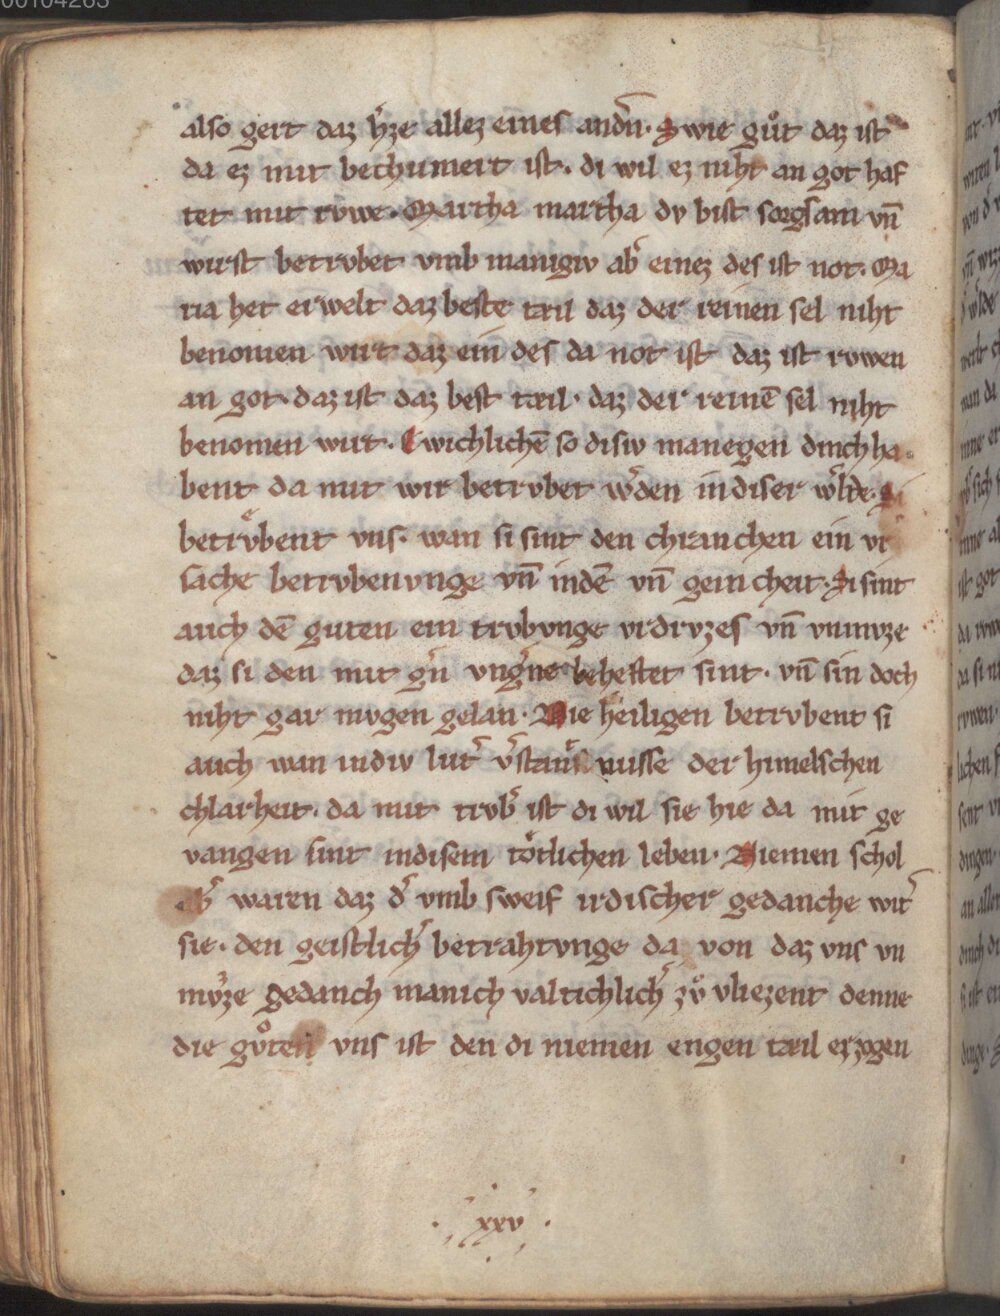 00104263
also gert daz h̾ze allez eines and̾n. Swie gůt daz ist
da ez mit bechumert ist. di wil ez niht an got haf
tet mit rvwe. Martha martha dv bist sorgsam vn̄
wirst betrvbet vmb manigiv ab̾ einez des ist not. Ma
ria het erwelt daz beste tæil daz der reinen sel niht
benomen wirt daz ein des da not ist daz ist rvwen
an got. daz ist daz best tæil. daz der reinē sel niht
benomen wirt. Ewichlichē so disiv manegen dinch ha
bent da mit wir betrvbet w̾den in diser w̾lde. Si
betrv̊bent vns. wan si sint den chranchen ein vr
sache betrvbenvnge vn̄ indē vn̄ geincheit. Si sint
auch dē guten ein trvbvnge vrdrvzes vn̄ vnnvze
daz si den mit g̾n vng̾ne beheftet sint. vn̄ sin doch
niht gar mvgen gelan. Die heiligen betrvbent si
auch wan in div lut̾ v̾stantnusse der himelschen
chlarheit. da mit trvb̾ ist di wil sie hie da mit ge
vangen sint in disem tötlichen leben. Niemen schol
ab̾ wænen daz d̾ vmb sweif irdischer gedanche wirt̾
sie. den geistlich̾ betrahtvnge da von daz vns vn
nvze gedanch manich valtichlich̾ zv̊ vliezent denne
die gv̊ten vns ist den di niemen engen tæil erzogen
. xxv .